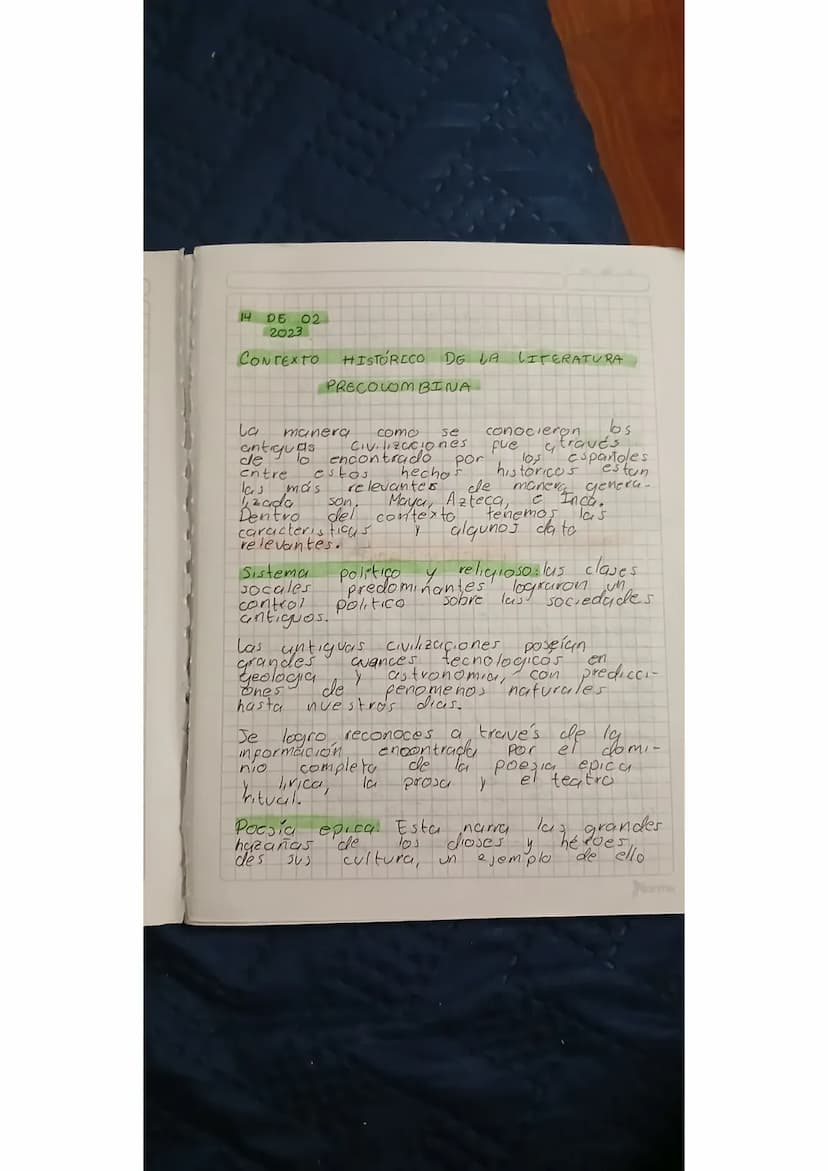 14 DE 02
2023
CONTEXTO HISTÓRICO DE LA LITERATURA
PRECOLOMBINA
La manera como se conocieron los
antiguas civilizaciones fue a través
de lo encontrado por los españoles
entre estos hechos históricos estan
las más relevantes de manera genera-
lizada son. Maya, Azteca, e Inca.
Dentro del contexto tenemos las
caracteristicas y algunos dato
relevantes.
Sistema politico y religioso: las clases
socales predominantes lograron un
control politico sobre las sociedades
antiguos.
Las antiguas civilizaciones poseían
grandes avances tecnologicos en
geologia y astronomia, con predicci-
ones de fenomenos naturales
hasta nuestros dias.
Se logro reconoces a través de la
información encontrada por el domi-
nio completo de la poesia epica
y lirica, la prosa y el teatro
ritual.
Poesía epica: Esta narra las grandes
hazañas de los dioses y héroes
des sus cultura, un ejemplo de ello
Norma